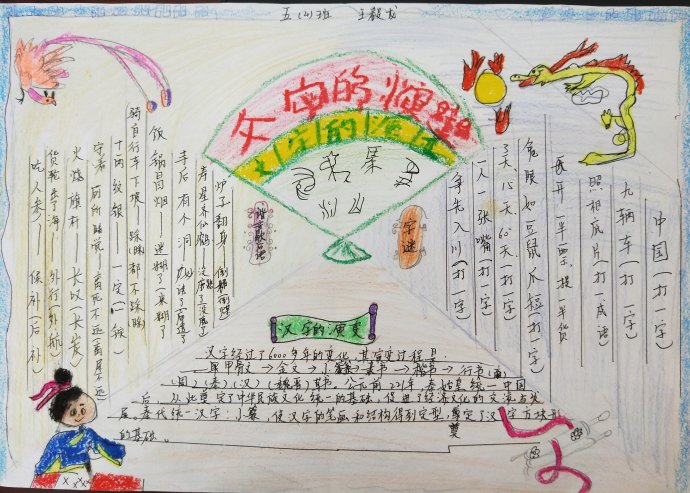 五(四)班 王毅龙
文字的演变
文字的演变
谐音歇后语
字谜
中国(打一字)
九辆车(打一字)
照相底片(打一成语)
展开一半票,提一半货
兔頭如豆鼠爪短(打一字)
3天、15天、60天(打一字)
一人一张嘴(打一字)
争先入川(打一字)
炉子翻身——倒霉
寿星养仙鹤——没
寺后有个洞——妙
饭锅冒烟——迷糊了(米糊了)
骑自行车下坡——踩(睬)都不踩(睬)
十两纹银——一定(一锭)
守着厕所睡觉——离死不远(离屎不远)
火烧旗杆——长叹(长炭)
货轮出了海——外行(外航)
吃人参——候补(后补)
汉字的演变
汉字经过了6000多年的变化,其演变过程是:
甲骨文→金文→小篆→隶书→楷书→行书
(商)(周)(秦)(汉)(魏晋)草书。公元前221年,秦始皇统一中国
后,从此奠定了中华民族文化统一的基础,促进了经济文化的交流与发
展。秦代统一汉字:小篆,使汉字的笔画和结构得到定型,奠定了汉字方块形
的基础。